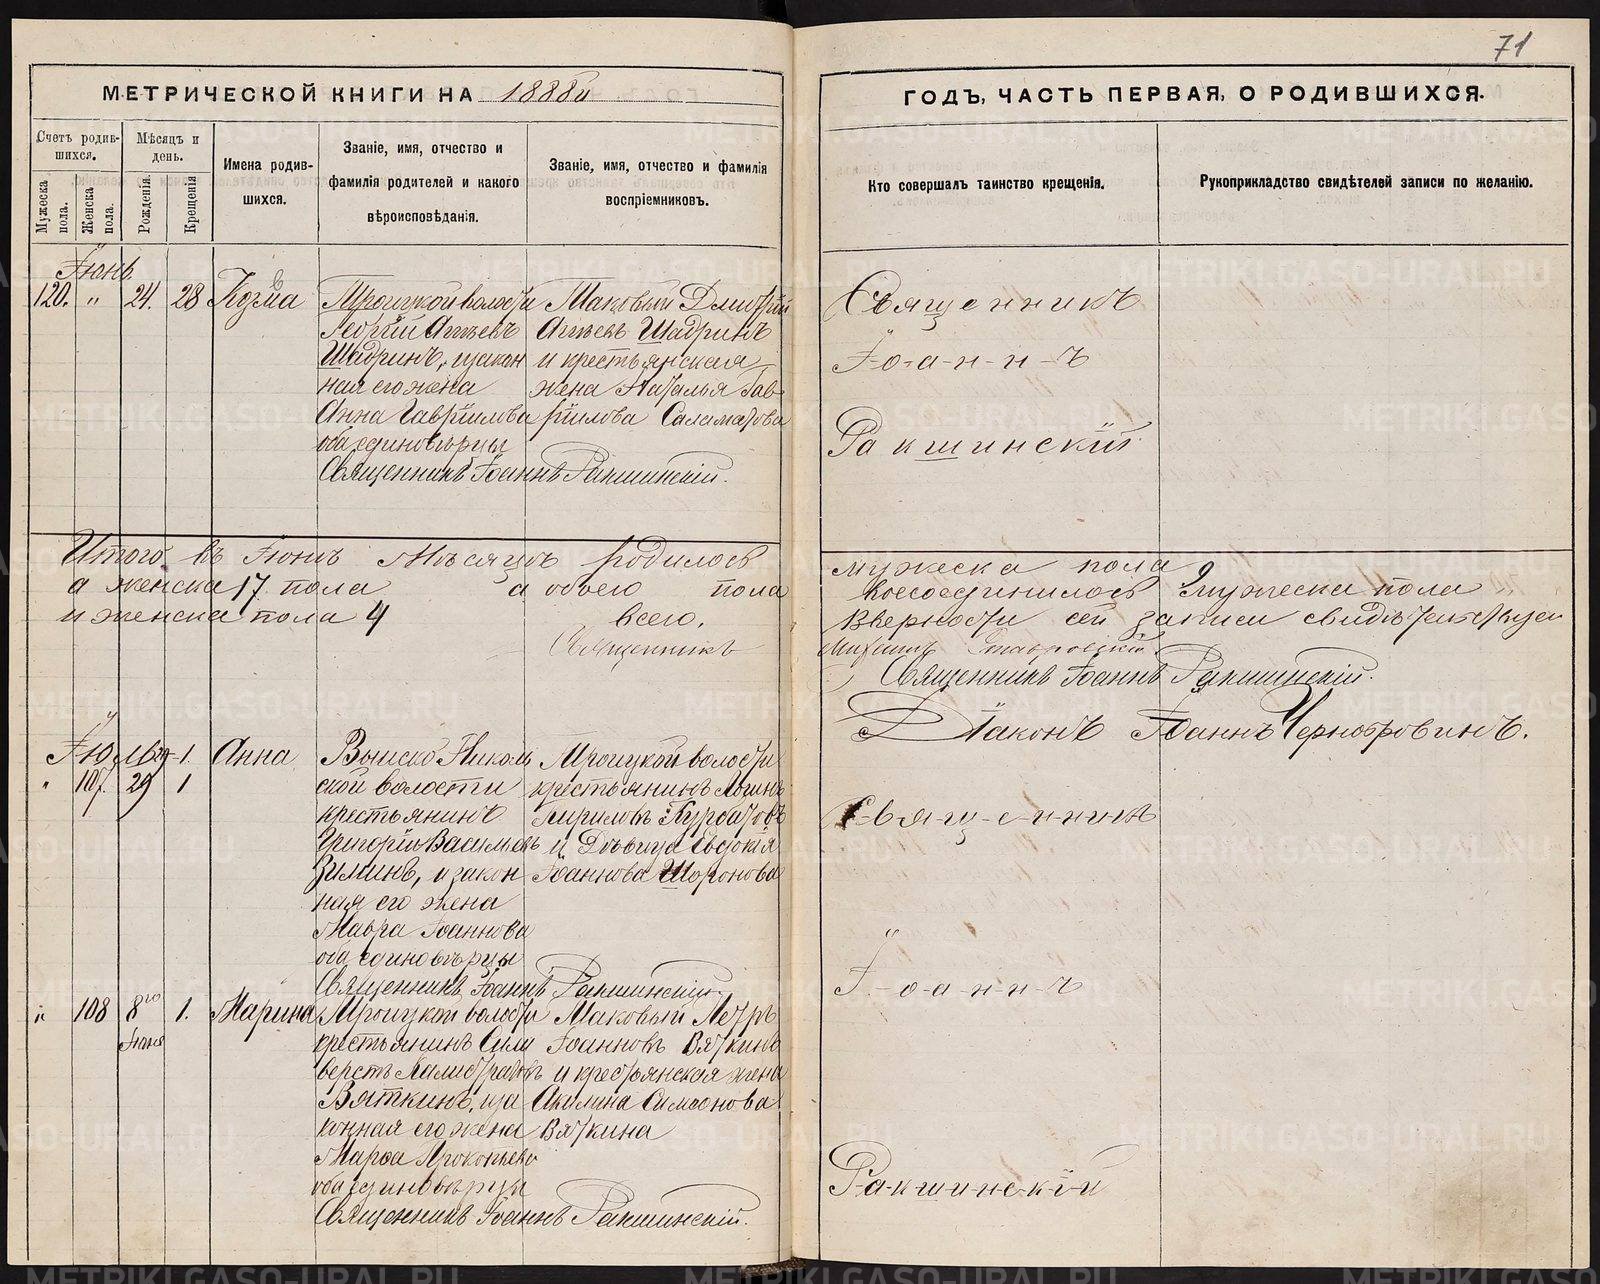 71
МЕТРИЧЕСКОЙ КНИГИ НА 1888й
ГОДЪ, ЧАСТЬ ПЕРВАЯ, О РОДИВШИХСЯ.
Счетъ родившихся.
Мужеска пола.
Женска пола.
Мѣсяцъ и день.
Рожденія.
Крещенія
Имена родившихся.
Званіе, имя, отчество и
фамилія родителей и какого
вѣроисповѣданія.
Званіе, имя, отчество и фамилія
воспріемниковъ.
Кто совершалъ таинство крещенія.
Рукоприкладство свидѣтелей записи по желанію.
Іюнь
120. " 24. 28 Козма
Троицкой волости
Георгій Агѣевъ
Шадринъ, изакон
ная его жена
Анна Гавріилова
оба единовѣрцы
Священникъ Іоаннъ Ракшинскій.
Таковый Дмитрій
Агѣевъ Шадринъ
и крестьянская
жена Наталья Гав
ріилова Саламатова
Священникъ
Іоаннъ
Ракшинскій
Итого въ Іюнѣ Мѣсяцѣ родилось
а женска 17 пола а обоего пола
и женска пола 4 всего.
Священникъ
мужеска пола
воесоединилось 9 мужеска пола
Вверности сей записи свидѣтельствуем
Священникъ Іоаннъ Ракшинскій.
Діаконъ Іоаннъ Чернобровинъ.
Іюль 29 1. Анна
" 107. 29 1
Выиско Никол
ской волости
крестьянинъ
Григорій Васильевъ
Зиминъ, изакон
ная его жена
Мавра Іоаннова
оба единовѣрцы
Священникъ Іоаннъ Ракшинскій.
Троицкой волости
крестьянинъ Логинъ
Кириловъ Курбатовъ
и Дѣвица Евдокія
Іоаннова Шоронова
Священникъ
Іоаннъ
Ракшинскій
" 108 8го 1. Марина
Іюня
Троицкой волости
крестьянинъ Сили
верстъ Калистратовъ
Вяткинъ, иза
конная его жена
Марфа Прокопьева
оба единовѣрцы
Священникъ Іоаннъ Ракшинскій.
Таковый Петръ
Іоанновъ Вяткинъ
и крестьянская жена
Акилина Симеонова
Вяткина
METRIKI.GASO-URAL.RU